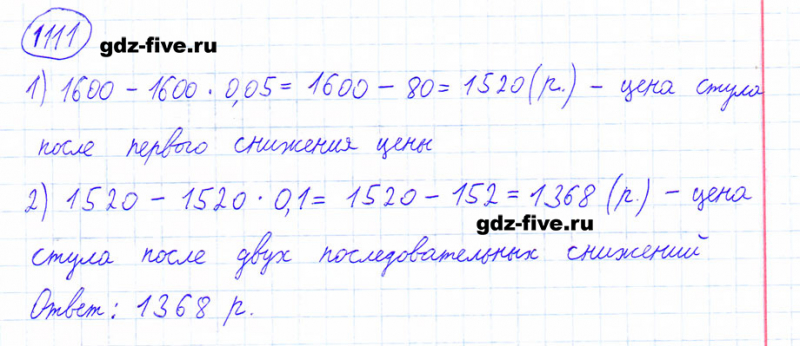 1111 gdz-five.ru
1) 1600 - 1600 · 0,05 = 1600 - 80 = 1520 (р.) - цена стула
после первого снижения цены
2) 1520 - 1520 · 0,1 = 1520 - 152 = 1368 (р.) - цена
gdz-five.ru
стула после двух последовательных снижений
Ответ: 1368 р.